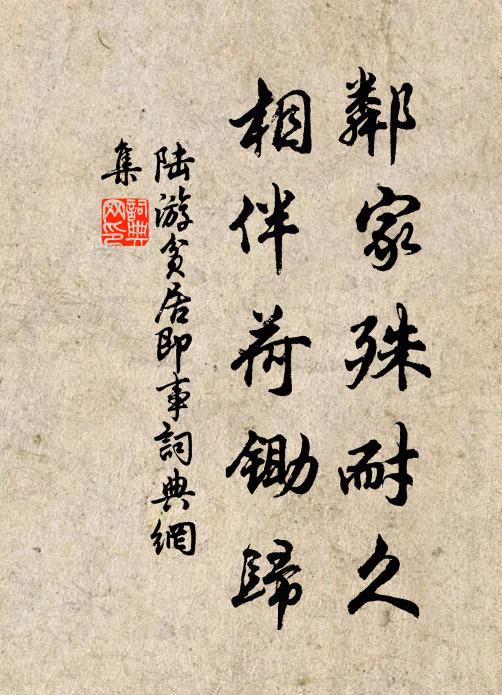 鄰家殊耐久
相伴荷鋤歸
陆游貧居即事詞典網
集
詞典網印